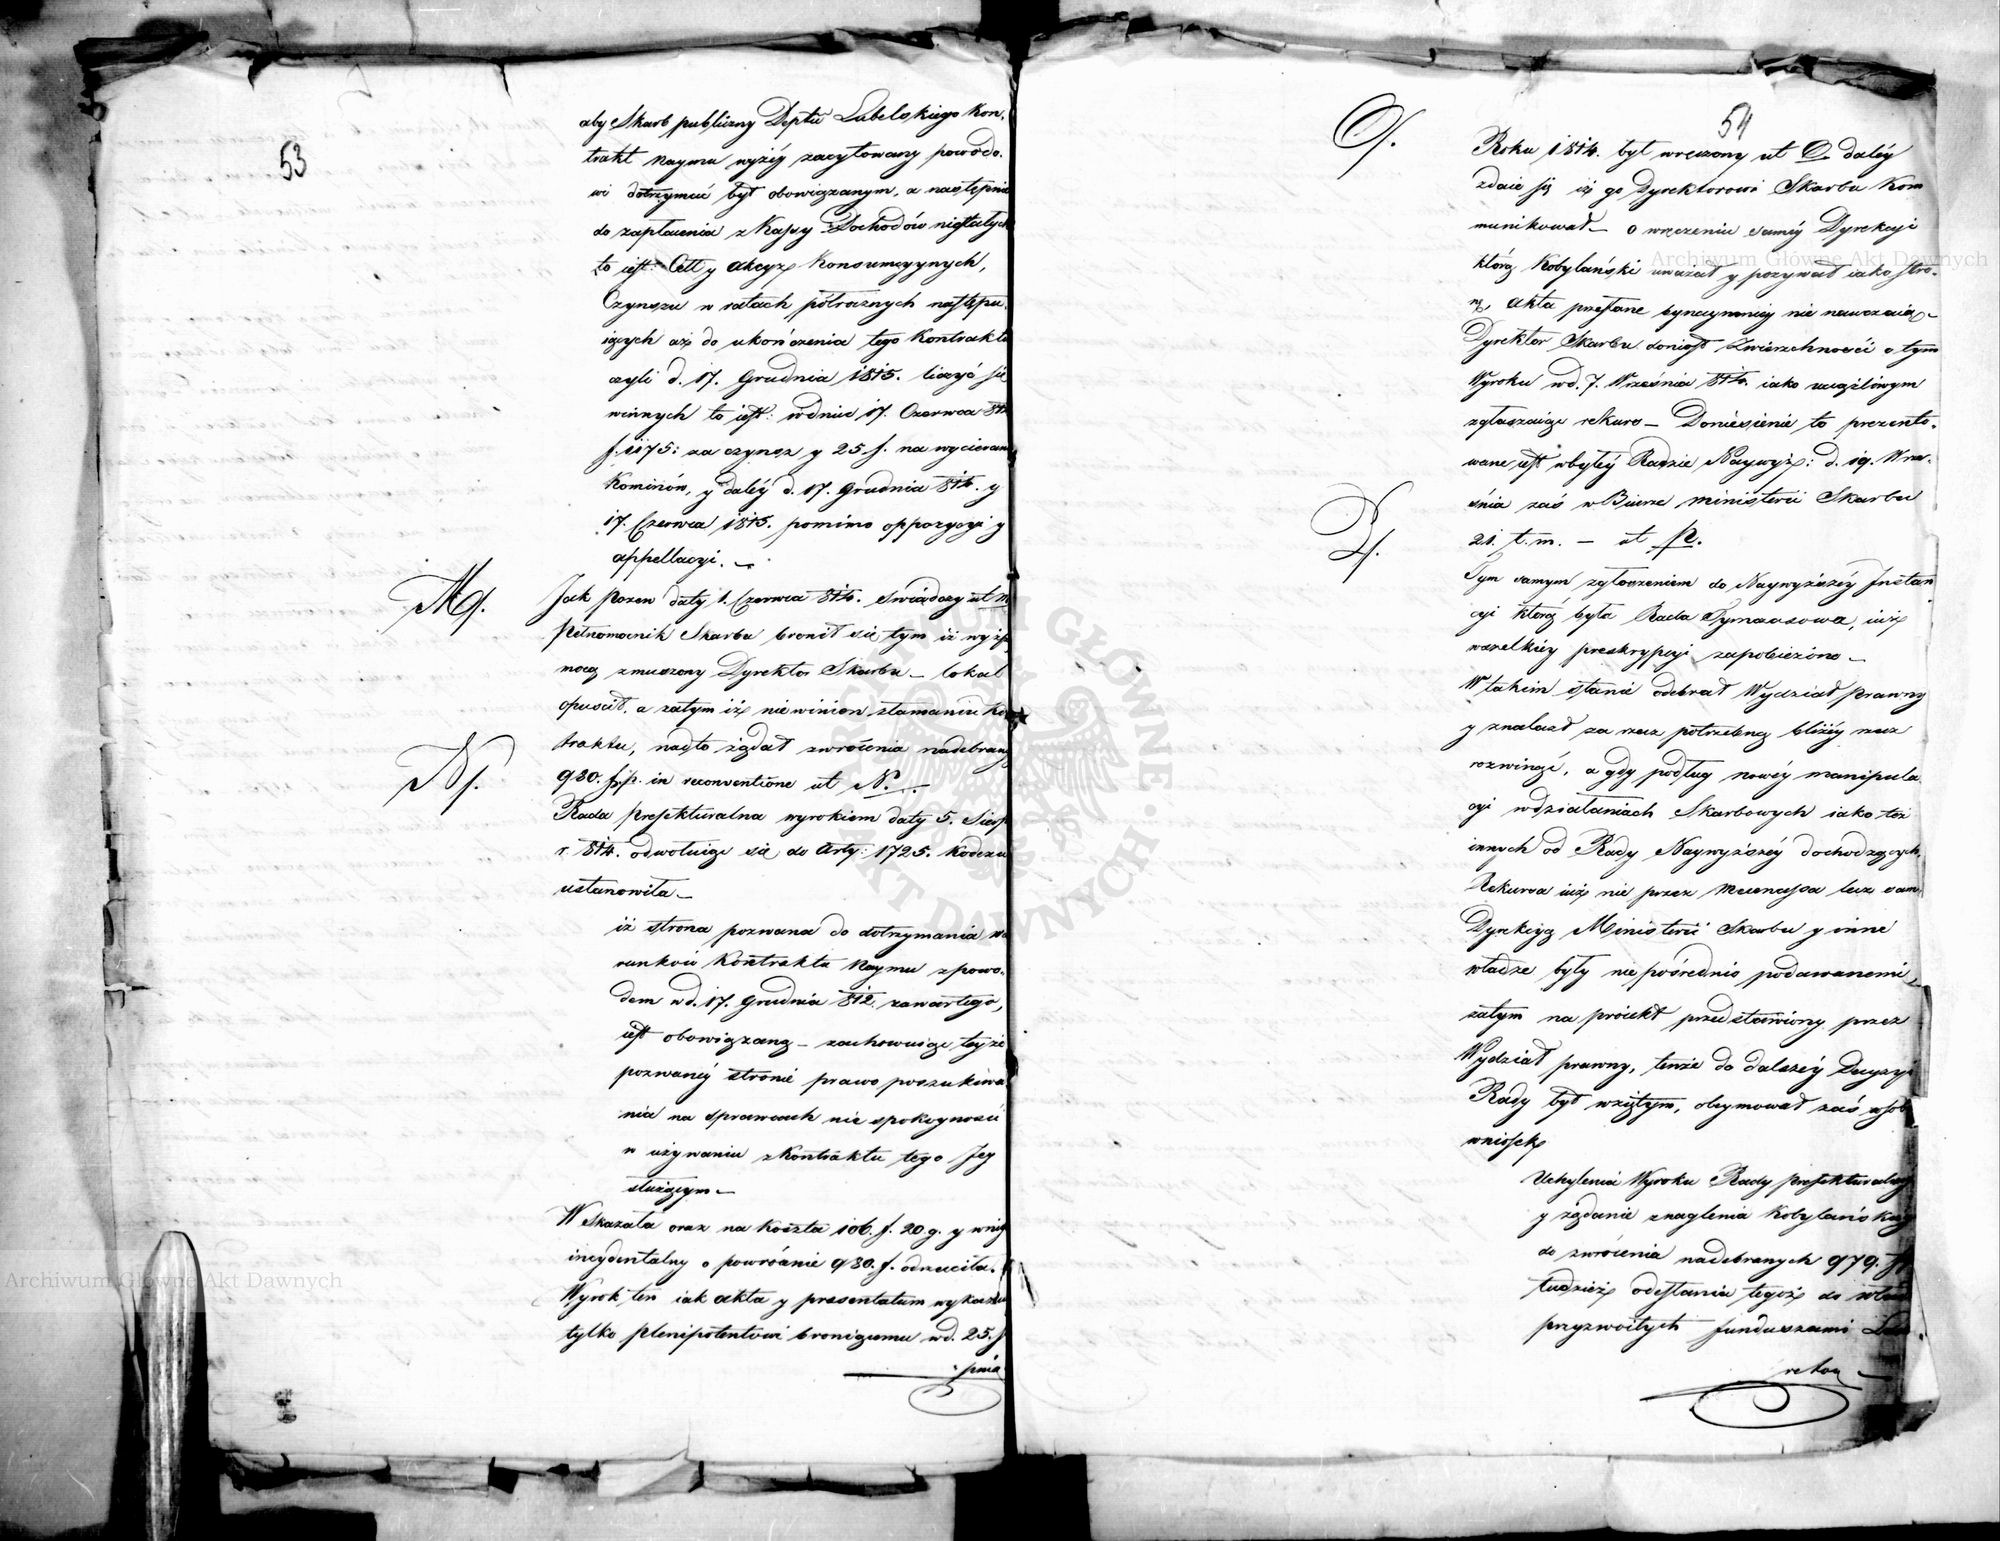 53
aby Skarb publiczny Deptu Lubelskiego kon-
trakt naymu wyżéy zacytowany powodo-
wi dotrzymać był obowiązanym, a następnie
do zapłacenia z Kassy Dochodów niestałych
to iest: Cell y Akcyz Konsumcyynych,
Czynszu w ratach półrocznych następu-
iących aż do ukończenia tego Kontraktu
czyli d. 17. Grudnia 1815. liczyć się
winnych to iest: w dniu 17. Czerwca 814
f. 1175: za czynsz y 25 f. na wycieranie
Kominów, y daléy d. 17. Grudnia 814. y
17. Czerwca 1815. pomimo oppozycyi y
appellacyi. —
M.
Jak Pozew daty 1. Czerwca 814. świadczy ut M
Pełnomocnik Skarbu bronił się tym iż wyższą
mocą zmuszony Dyrektor Skarbu — lokal
opuścił, a zatym iż niewinien złamaniu Kon
traktu, nadto żądał zwrócenia nadebranych
930. f.p. in reconventione ut N. —
N.
Rada prefekturalna wyrokiem daty 5. Sierp
r. 814. odwołuiąc się do Arty: 1725. Kodexu
ustanowiła —
iż strona pozwana do dotrzymania wa
runków Kontraktu Naymu z powo-
dem w d. 17. Grudnia 812. zawartego,
iest obowiązaną — zachowuiąc teyże
pozwanéy stronie prawo poszukiwa
nia na sprawcach niespokoyności
w używaniu z Kontraktu tego Jey
służącym —
Wskazała oraz na koszta 106. f. 20 g. y wnio
incydentalny o powrócenie 930. f. odrzuciła.
Wyrok ten iak akta y presentatum wykazuie
tylko plenipotentowi broniącemu w d. 25. S
pnia
54
O.
Roku 1814. był wręczony ut O daléy
zdaie się iż go Dyrektorowi Skarbu Kom
munikował — o wręczeniu saméy Dyrekcyi
którą Kobylański uważał y pozywał iako stro-
nę, akta przesłane bynaymniéy nie nauczaią —
Dyrektor Skarbu doniosł Zwierzchności o tym
Wyroku w d. 7. Września 814. iako uciążliwym
zgłaszaiąc rekurs — Doniesienie to prezento-
wane iest w byłéy Radzie Naywyż: d. 19. Wrze-
śnia zaś w Biurze Ministerii Skarbu
21. t. m. — ut P.
P.
Tym samym zgłoszeniem do Naywyższéy Instan
cyi którą była Rada Tymczasowa, iuż
wszelkiéy preskrypcyi zapobieżono —
W takim stanie odebrał Wydział prawny
y znalazł za rzecz potrzebną bliżéy rzecz
rozwinąć, a gdy podług nowéy manipula
cyi w działaniach Skarbowych iako też
innych od Rady Naywyższéy dochodzących,
Rekursa iuż nie przez Mecenassa lecz sam-
Dyrekcyą Ministerii Skarbu y inne
władze były niepośrednio podawanemi,
zatym na proiekt przedstawiony przez
Wydział prawny, tenże do dalszéy Decyzyi
Rady był wziętym, obeymował zaś w sob
wniosek
Uchylenia Wyroku Rady prefekturalnéy
y żądanie znaglenia Kobylańskiego
do zwrócenia nadebranych 979. f
tudzież odesłania tegoż do władz
przyzwoitych funduszami